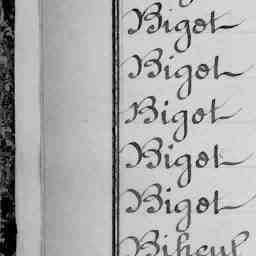 Bigot
Bigot
Bigot
Bigot
Bigot